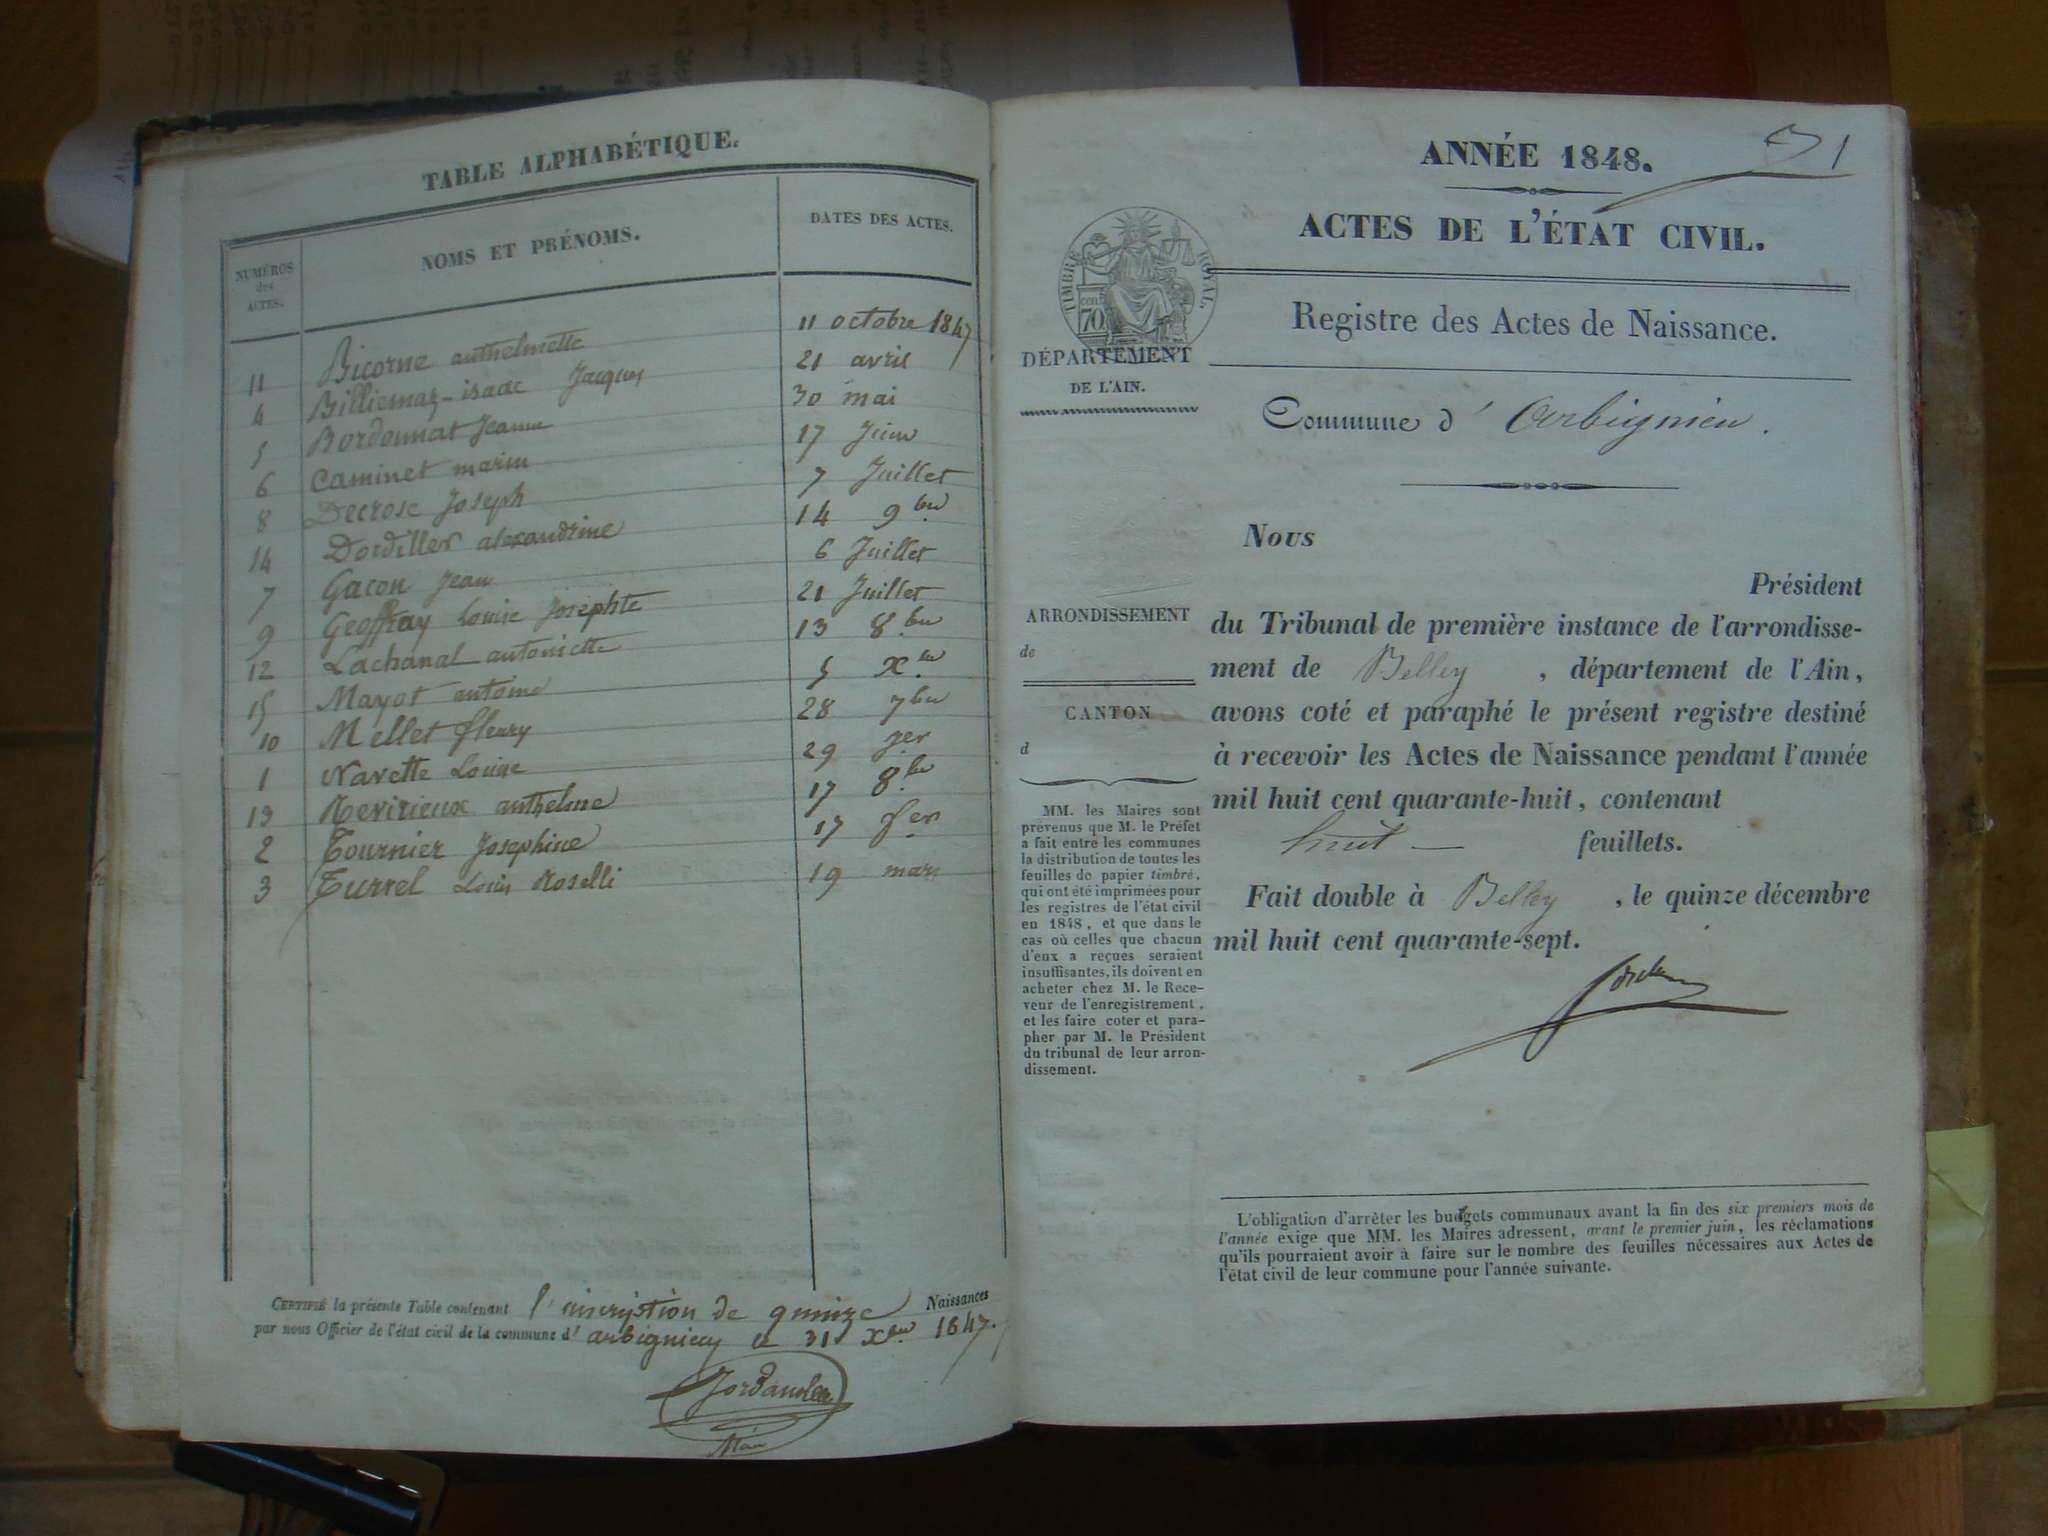 TABLE ALPHABÉTIQUE.
NUMÉROS des ACTES. NOMS ET PRÉNOMS. DATES DES ACTES.
11 Bicorne anthelmette 11 octobre 1847
4 Billiemaz-isaac Jacques 21 avril
5 Bordonnat Jeanne 30 mai
6 Caminet marin 17 Juin
8 Decrose Joseph 7 Juillet
14 Dordiller alexandrine 14 9bre
7 Gacon Jean 6 Juillet
9 Geoffray Louise Josephte 21 Juillet
12 Lachanal antoinette 13 8bre
15 Mayot antoine 5 Xbre
10 Mellet fleury 28 7bre
1 Navette Louise 29 Jer
13 Revirieux anthelme 17 8bre
2 Tournier Josephine 17 fer
3 Turrel Louis Roselli 19 mars
CERTIFIÉ la présente Table contenant l'inscription de quinze Naissances
par nous Officier de l'état civil de la commune d' arbignieu le 31 Xbre 1847.
ANNÉE 1848.
1
ACTES DE L'ÉTAT CIVIL.
TIMBRE ROYAL.
70 cent
Registre des Actes de Naissance.
DÉPARTEMENT
DE L'AIN.
Commune d' Arbignieu.
Nous
Président
ARRONDISSEMENT
de
CANTON
d
du Tribunal de première instance de l'arrondisse-
ment de Belley, département de l'Ain,
avons coté et paraphé le présent registre destiné
à recevoir les Actes de Naissance pendant l'année
mil huit cent quarante-huit, contenant
huit — feuillets.
Fait double à Belley, le quinze décembre
mil huit cent quarante-sept.
MM. les Maires sont
prévenus que M. le Préfet
a fait entre les communes
la distribution de toutes les
feuilles de papier timbré,
qui ont été imprimées pour
les registres de l'état civil
en 1848, et que dans le
cas où celles que chacun
d'eux a reçues seraient
insuffisantes, ils doivent en
acheter chez M. le Rece-
veur de l'enregistrement,
et les faire coter et para-
pher par M. le Président
du tribunal de leur arron-
dissement.
L'obligation d'arrêter les budgets communaux avant la fin des six premiers mois de
l'année exige que MM. les Maires adressent, avant le premier juin, les réclamations
qu'ils pourraient avoir à faire sur le nombre des feuilles nécessaires aux Actes de
l'état civil de leur commune pour l'année suivante.